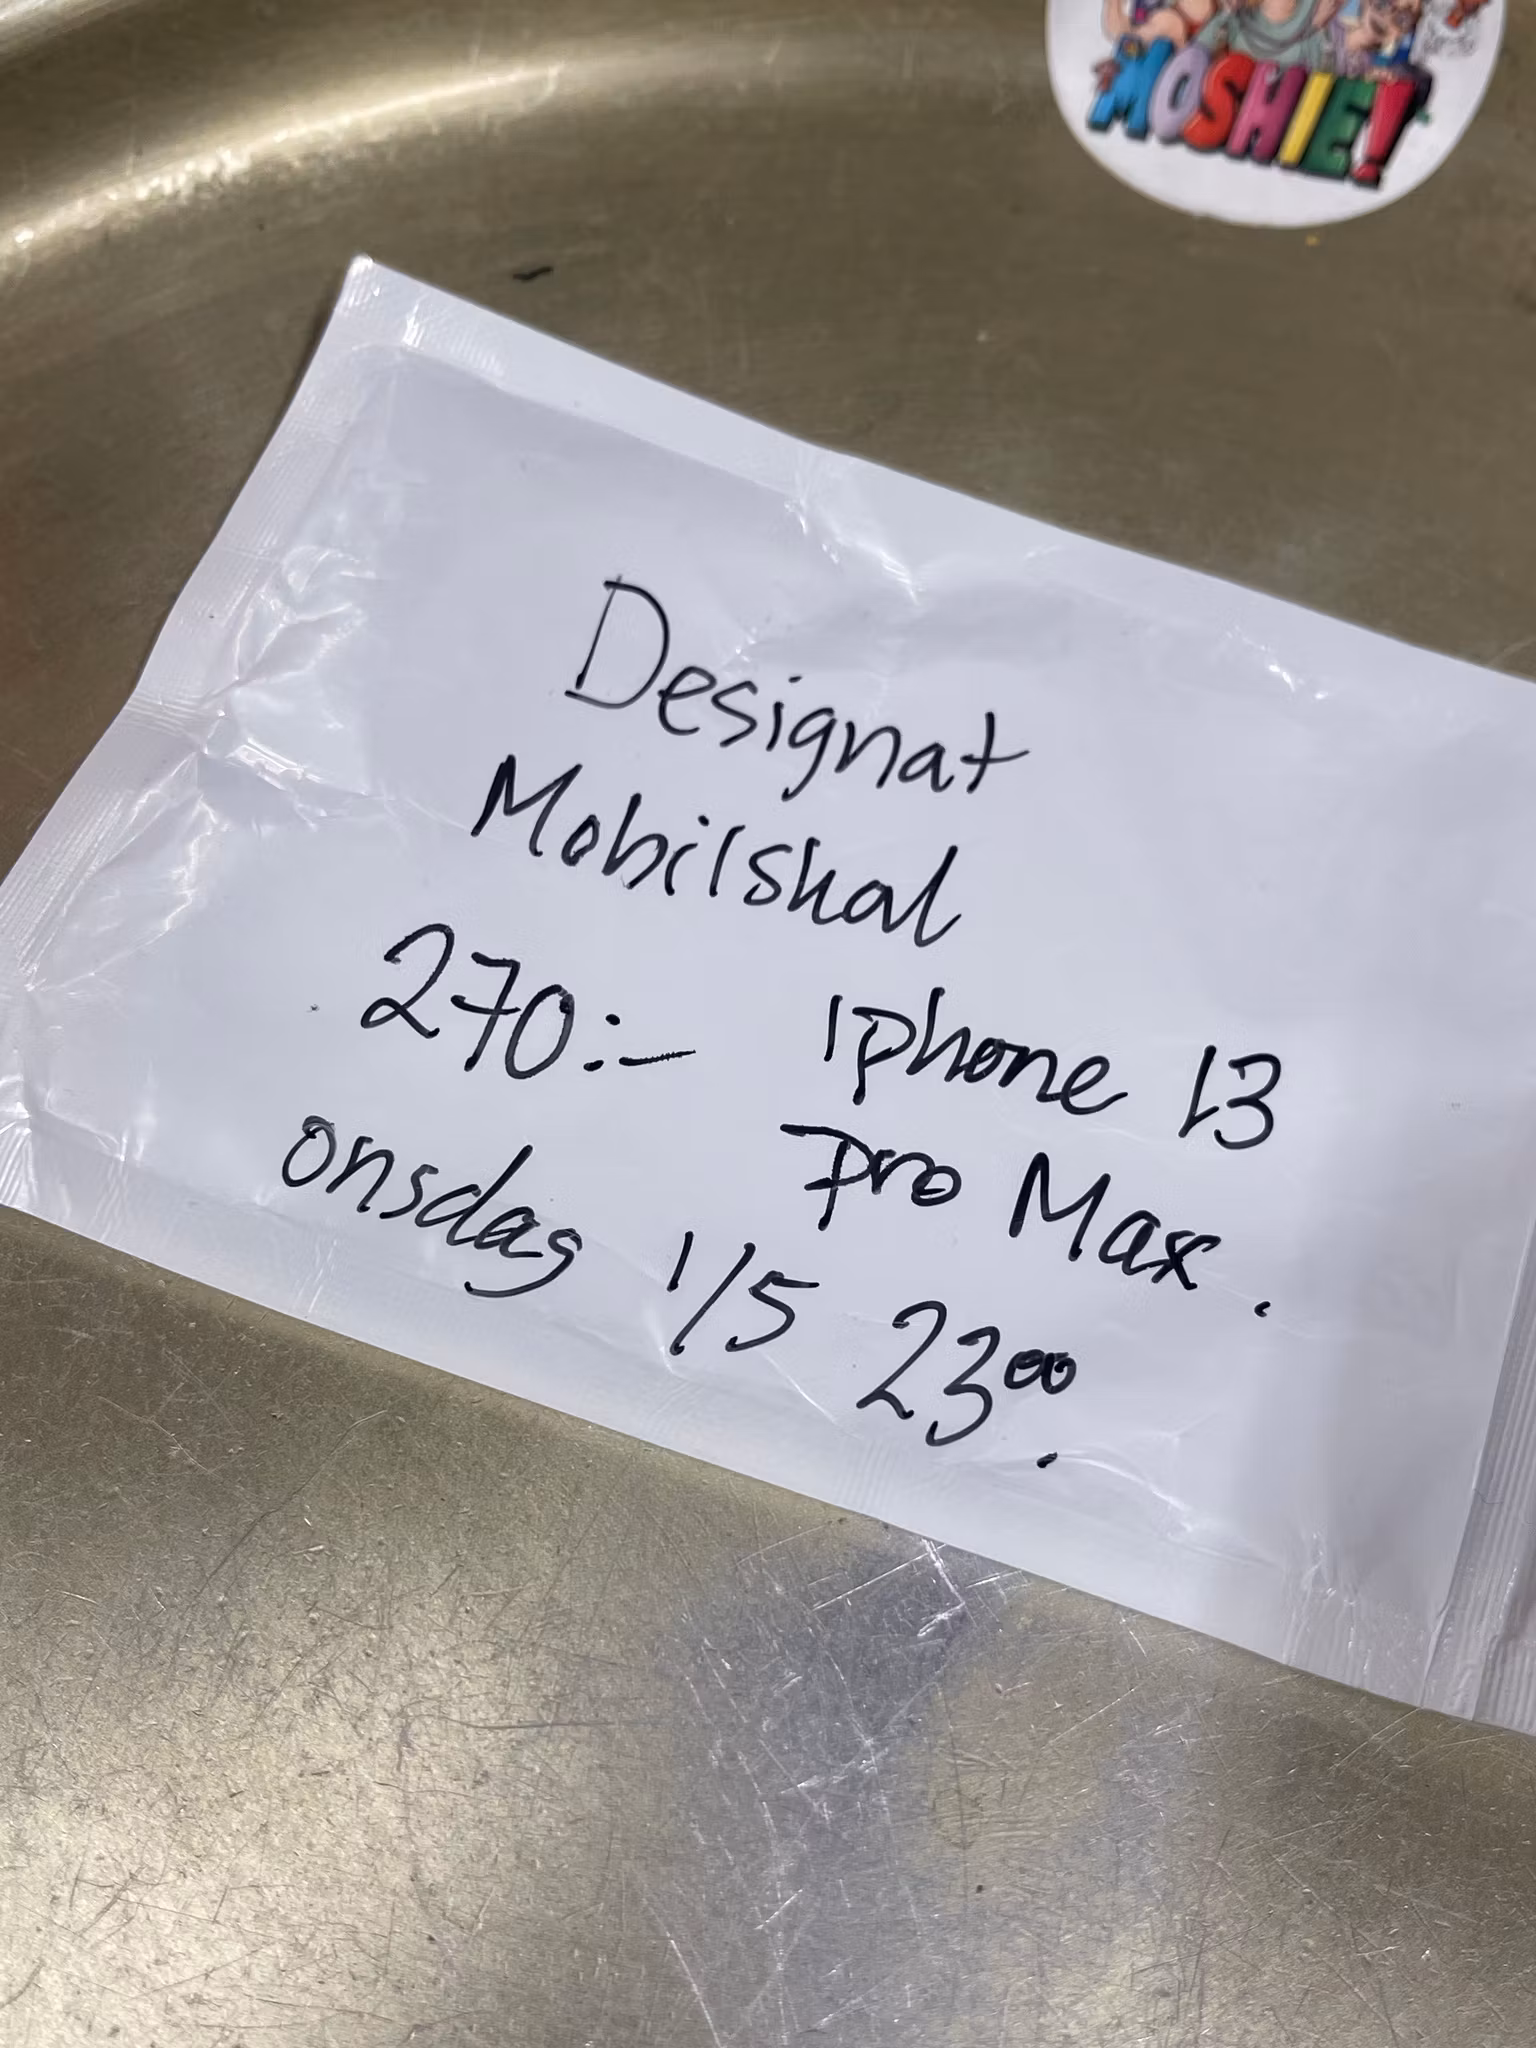 MOSHIE!
Designat
Mobilskal
270:- Iphone 13
Pro Max.
onsdag 1/5 23⁰⁰.